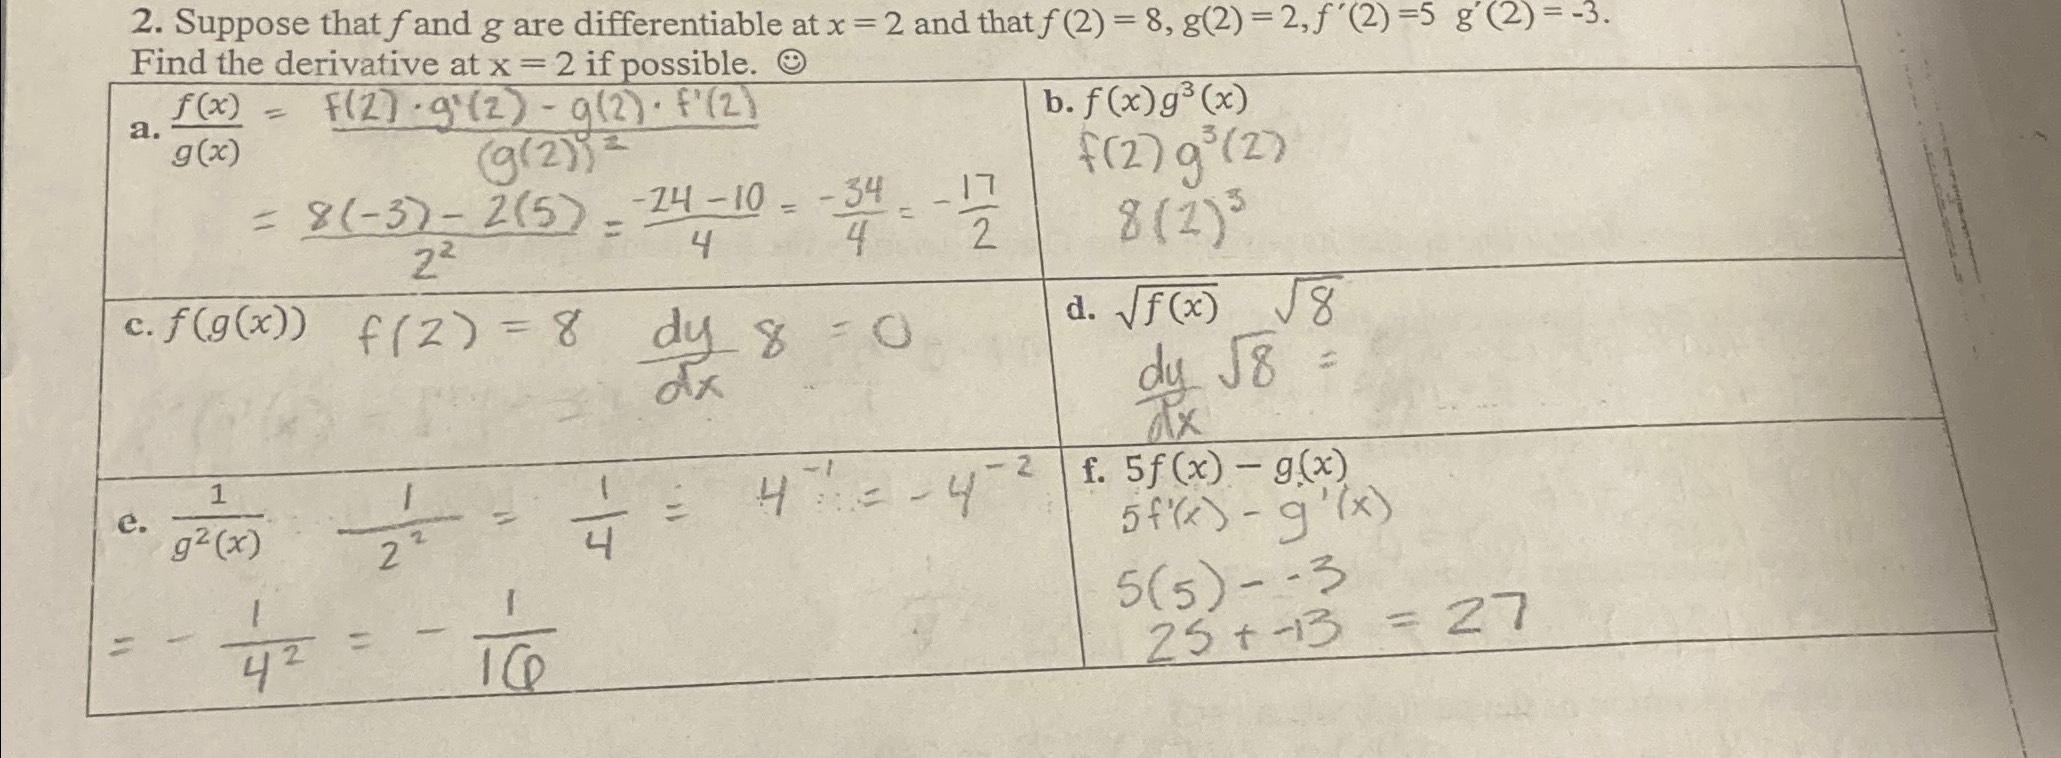 2. Suppose that f and g are differentiable at x = 2 and that f(2) = 8, g(2) = 2, f′(2) =5 g′(2) = -3.
Find the derivative at x = 2 if possible. ☺
a. f(x)/g(x) = (f(2) · g'(2) - g(2) · f'(2))/(g(2))²
= (8(-3) - 2(5))/2² = (-24 - 10)/4 = -34/4 = -17/2
b. f(x)g³(x)
f(2) g³(2)
8(2)³
c. f(g(x)) f(2) = 8 dy/dx 8 = 0
d. √f(x) √8
dy/dx √8 =
e. 1/g²(x) 1/2² = 1/4 = 4⁻¹ = -4⁻²
= - 1/4² = - 1/16
f. 5f(x) − g(x)
5f'(x) - g'(x)
5(5) - -3
25 + -13 = 27